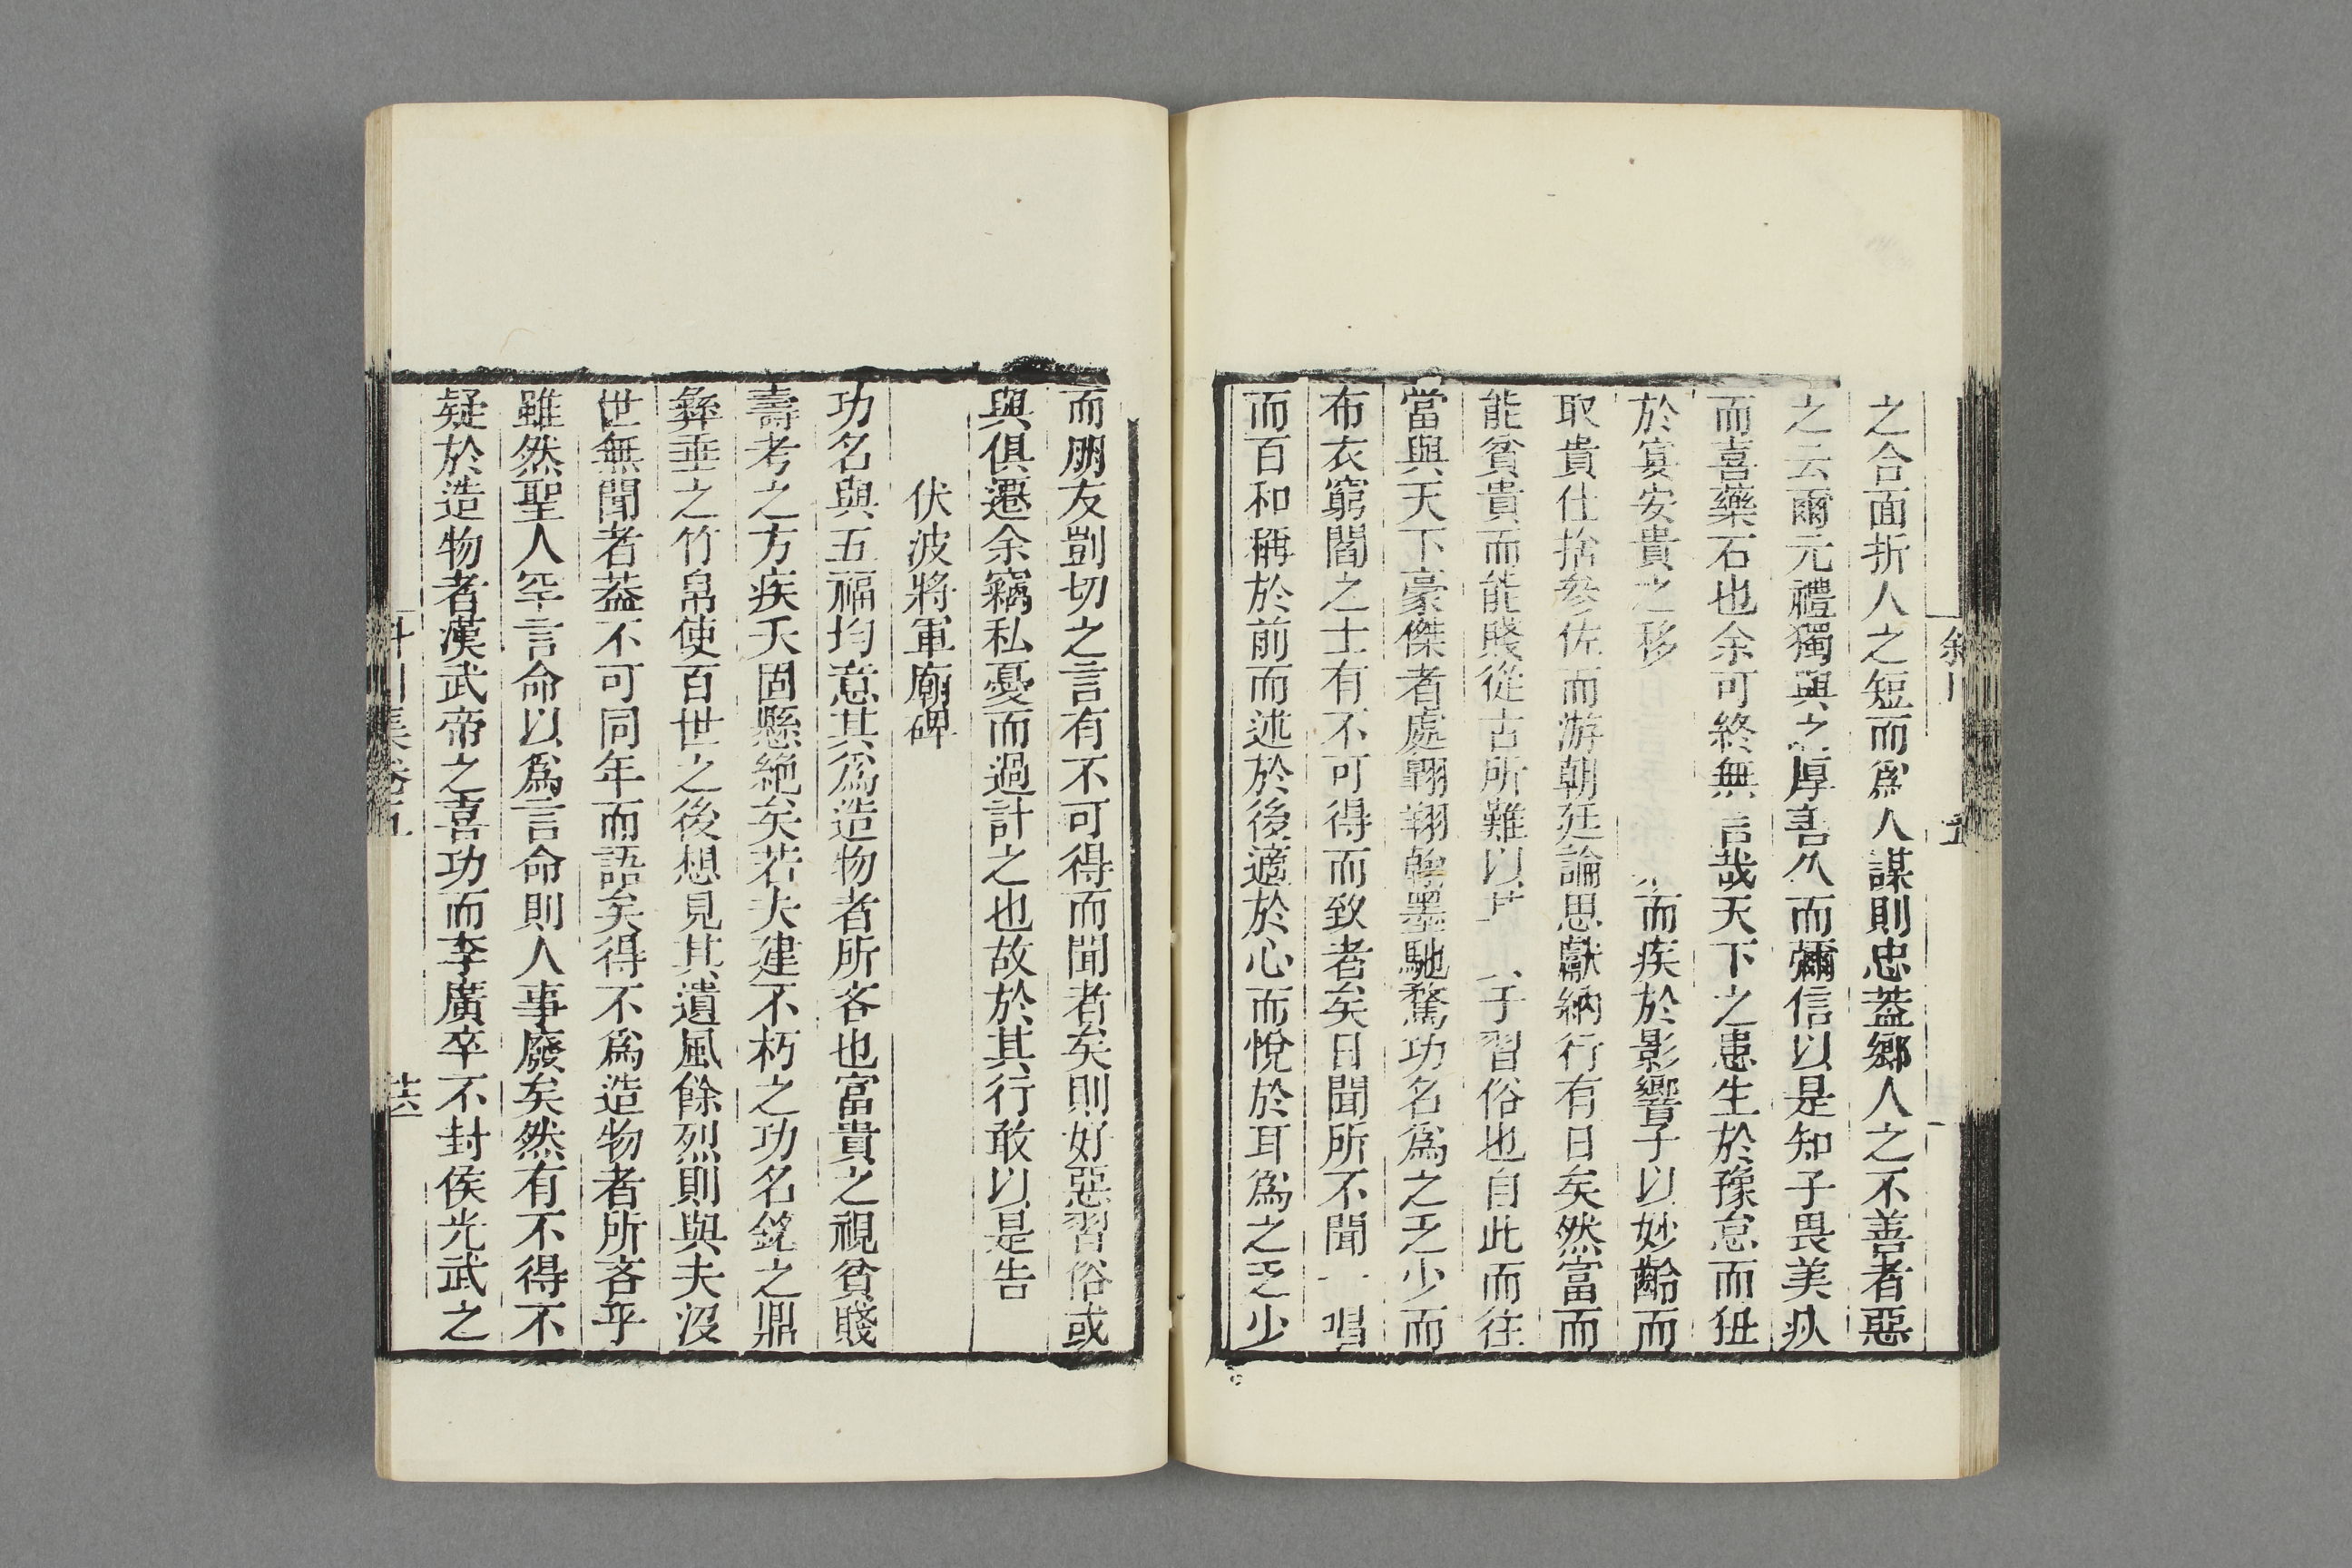 之合面折人之短而爲人謀則忠葢鄉人之不善者惡
之云爾元禮獨與之厚善久而彌信以是知子畏美疢
而喜藥石也余可終無言哉天下之患生於豫怠而狃
於宴安貴之移而疾於影響子以妙齡而
取貴仕捨參佐而游朝廷論思獻納行有日矣然富而
能貧貴而能賤從古所難以子習俗也自此而往
當與天下豪傑者處翺翔翰墨馳騖功名爲之乏少而
布衣窮閻之士有不可得而致者矣日聞所不聞一唱
而百和稱於前而述於後適於心而悅於耳爲之乏少
而朋友剴切之言有不可得而聞者矣則好惡習俗或
與俱遷余竊私憂而過計之也故於其行敢以是告
伏波將軍廟碑
功名與五福均意其爲造物者所吝也富貴之視貧賤
壽考之方疾夭固懸絕矣若夫建不朽之功名銘之鼎
彝垂之竹帛使百世之後想見其遺風餘烈則與夫沒
世無聞者葢不可同年而語矣得不爲造物者所吝乎
雖然聖人罕言命以爲言命則人事廢矣然有不得不
疑於造物者漢武帝之喜功而李廣卒不封侯光武之
川集卷五